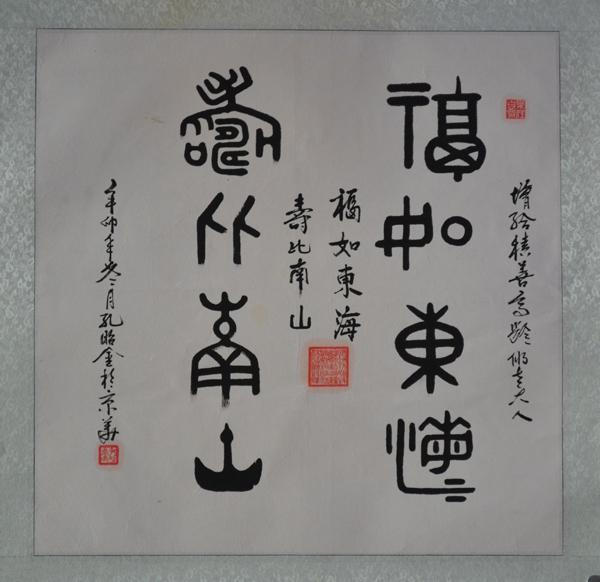 增給積善高齡老人
福如東海
福如東海
壽比南山
壽比南山
辛卯年冬月孔昭金於京華